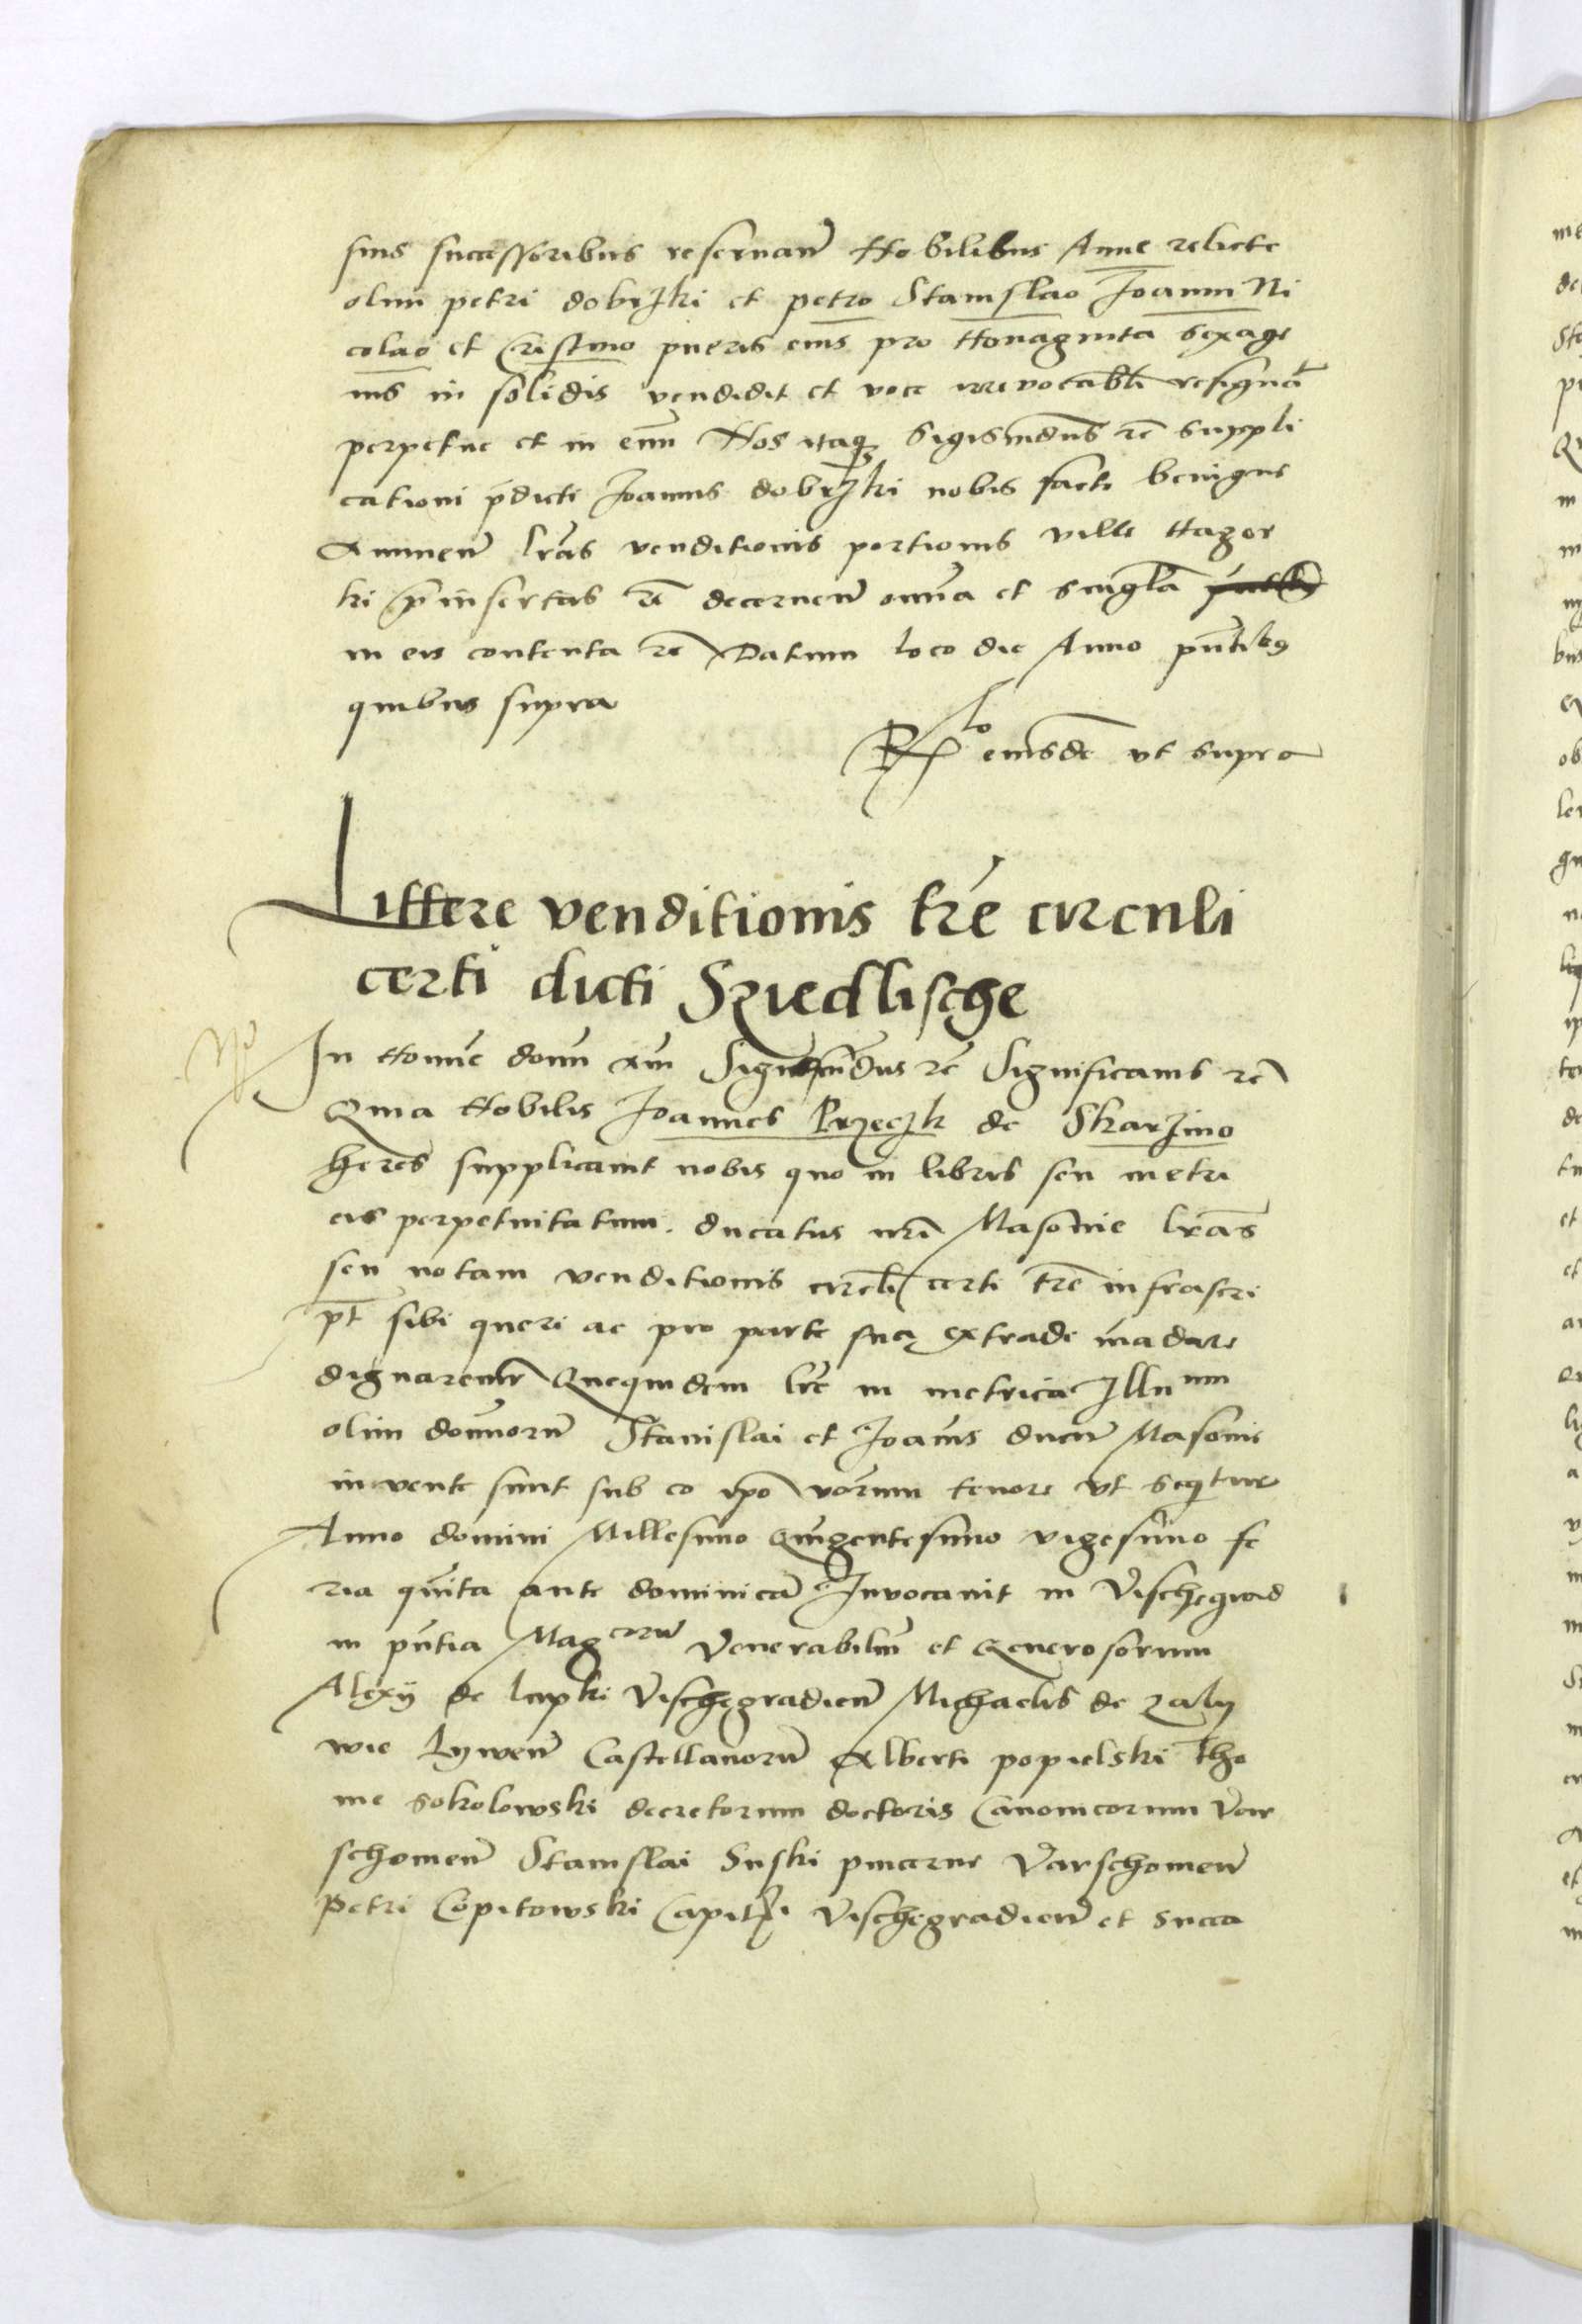 suis successoribus reservan Nobilibus Anne relicte
olim petri dobrzki et petro Stanislao Joanni Ni
colao et Cristino pueris eius pro Nonaginta sexage
nis in solidis vendidit et voce irrevocabli resignat
perpetue et in evum Nos itaq Sigismdus rc suppli
cationi pdicti Joannis dobrzki nobis facte benigne
Annuen lras venditionis portionis ville Nagor
ki pinsertas rc decernen omia et singla
in eis contenta rc Datum loco die Anno pntibq
quibus supra
Rlo eiusde ut supra
Littere venditionis tre circuli
certi dicti Sziedlische
In Nomie domi xm Sigismdus rc Significamus rc
Quia Nobilis Joannes Przeczk de Skarzino
heres supplicavit nobis quo in libris seu metri
cis perpetuitatum ducatus nri Masovie lras
seu notam venditionis circli certi tre infrascri
pt sibi queri ac pro parte sua extradi madare
dignaremur Quequidem lre in metrica Illu mm
olim domorum Stanislai et Joanis ducum Masovie
invente sunt sub eo ipo vorum tenore ut sequitur
Anno domini Millesimo Quigentesimo vigesimo fe
ria quita ante dominica Invocavit in Vischegrad
in pntia Mag corum Venerabilium et Generosorum
Alexii de lupki Vischegradien Michaelis de zaly
wie Lywen Castellanorum Alberti popielski Tho
me Sokolowski decretorum doctoris Canonicorum Var
schovien Stanislai Suski pincerne Varschovien
Petri Copitowski Capit Vischegradien et Succa